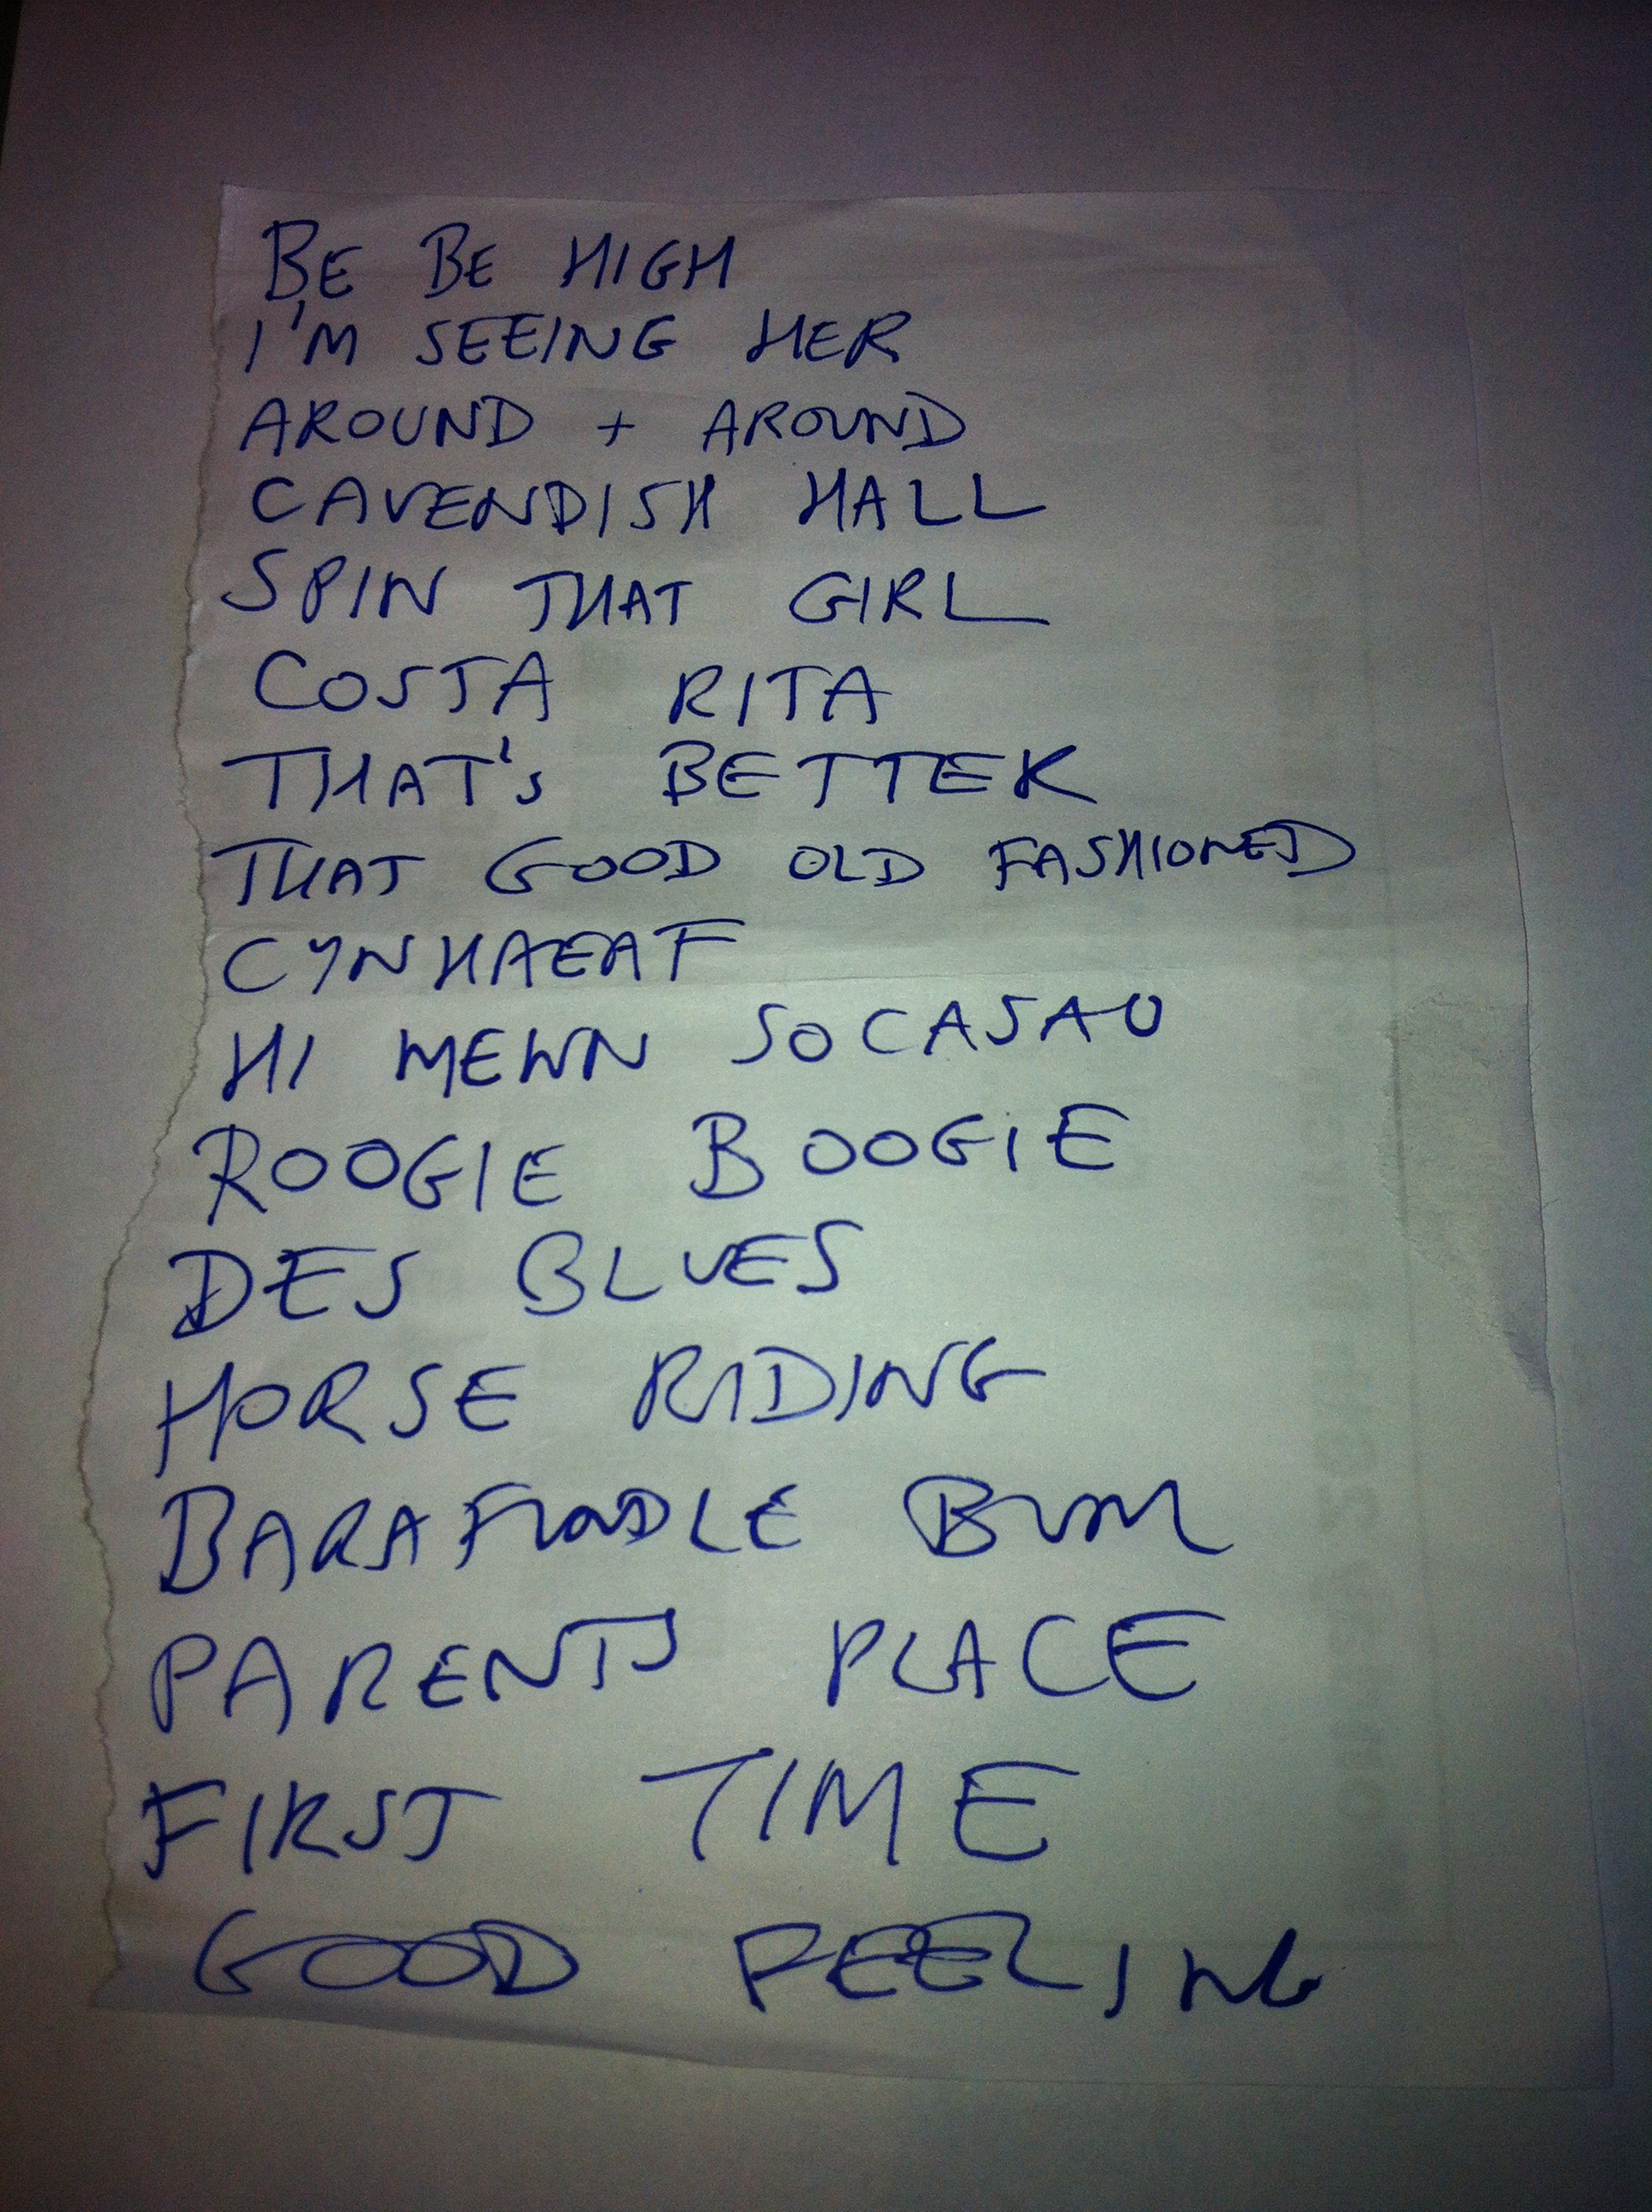 BE BE HIGH
I'M SEEING HER
AROUND + AROUND
CAVENDISH HALL
SPIN THAT GIRL
COSTA RITA
THAT'S BETTER
THAT GOOD OLD FASHIONED
CYNHAEAF
HI MEWN SOCASAU
ROOGIE BOOGIE
DES BLUES
HORSE RIDING
BARAFUNDLE BUM
PARENTS PLACE
FIRST TIME
GOOD FEELING